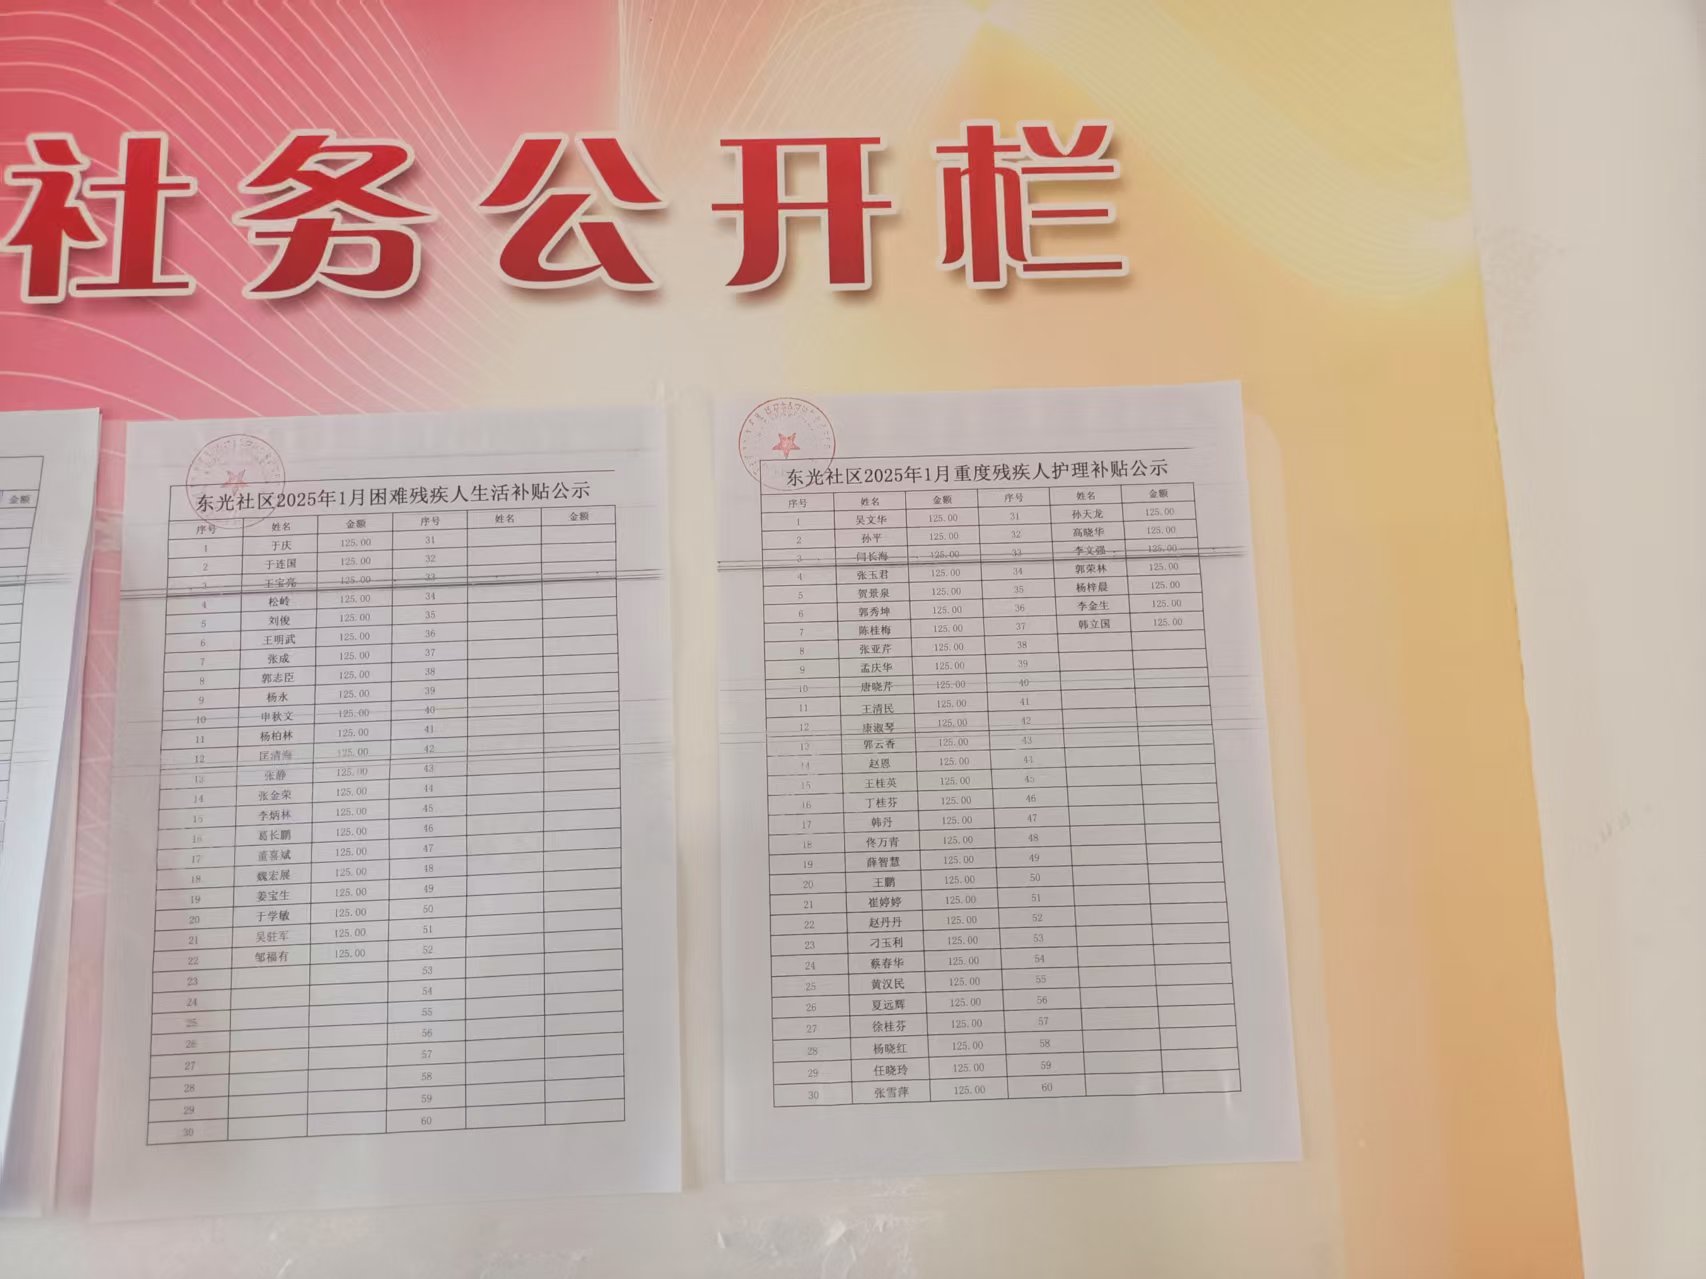 社务公开栏
金额
东光社区2025年1月困难残疾人生活补贴公示
序号 姓名 金额 序号 姓名 金额
1 于庆 125.00 31
2 于连国 125.00 32
3 王宝亮 125.00 33
4 松岭 125.00 34
5 刘俊 125.00 35
6 王明武 125.00 36
7 张成 125.00 37
8 郭志臣 125.00 38
9 杨永 125.00 39
10 申秋文 125.00 40
11 杨柏林 125.00 41
12 匡清海 125.00 42
13 张静 125.00 43
14 张金荣 125.00 44
15 李炳林 125.00 45
16 葛长鹏 125.00 46
17 董喜斌 125.00 47
18 魏宏展 125.00 48
19 姜宝生 125.00 49
20 于学敏 125.00 50
21 吴驻军 125.00 51
22 邹福有 125.00 52
23 53
24 54
25 55
26 56
27 57
28 58
29 59
30 60
东光社区2025年1月重度残疾人护理补贴公示
序号 姓名 金额 序号 姓名 金额
1 吴文华 125.00 31 孙天龙 125.00
2 孙平 125.00 32 高晓华 125.00
3 闫长海 125.00 33 李文强 125.00
4 张玉君 125.00 34 郭荣林 125.00
5 贺景泉 125.00 35 杨梓晨 125.00
6 郭秀坤 125.00 36 李金生 125.00
7 陈桂梅 125.00 37 韩立国 125.00
8 张亚芹 125.00 38
9 孟庆华 125.00 39
10 唐晓芹 125.00 40
11 王清民 125.00 41
12 康淑琴 125.00 42
13 郭云香 125.00 43
14 赵恩 125.00 44
15 王桂英 125.00 45
16 丁桂芬 125.00 46
17 韩丹 125.00 47
18 佟万青 125.00 48
19 薛智慧 125.00 49
20 王鹏 125.00 50
21 崔婷婷 125.00 51
22 赵丹丹 125.00 52
23 刁玉利 125.00 53
24 蔡春华 125.00 54
25 黄汉民 125.00 55
26 夏远辉 125.00 56
27 徐桂芬 125.00 57
28 杨晓红 125.00 58
29 任晓玲 125.00 59
30 张雪萍 125.00 60